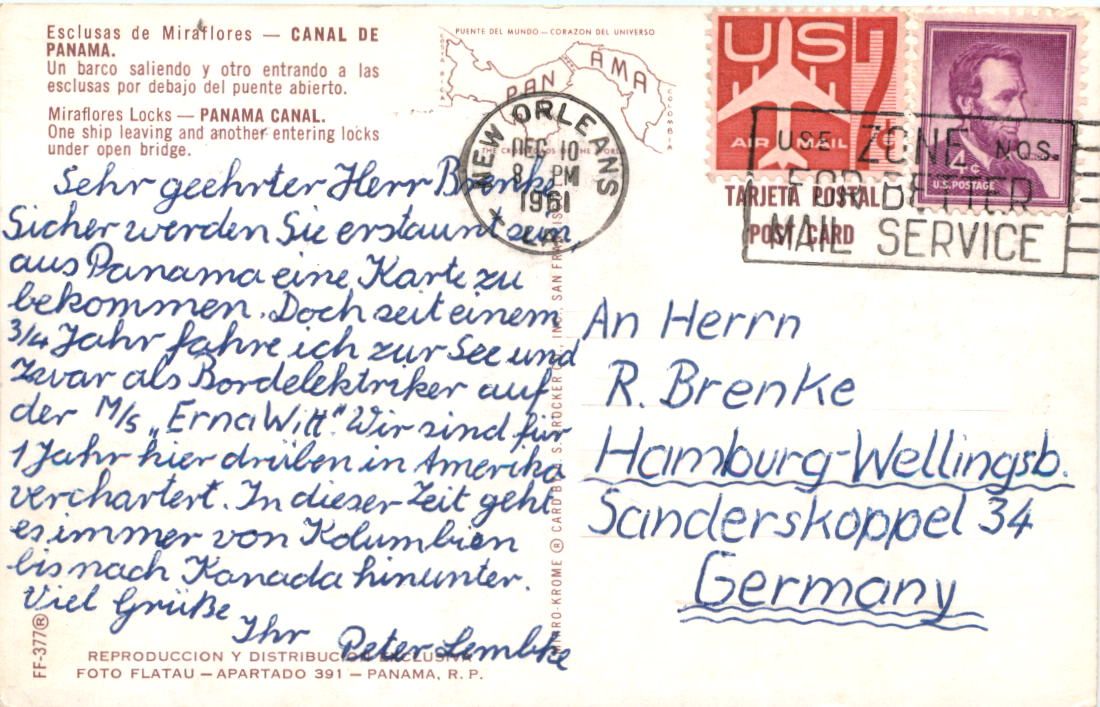 Esclusas de Miraflores — CANAL DE
PANAMA.
Un barco saliendo y otro entrando a las
esclusas por debajo del puente abierto.
Miraflores Locks — PANAMA CANAL.
One ship leaving and another entering locks
under open bridge.
PUENTE DEL MUNDO — CORAZON DEL UNIVERSO
PANAMA
NEW ORLEANS
DEC 10
8 PM
1961
LA
US
7¢
AIR MAIL
4¢
U.S. POSTAGE
USE ZONE NOS.
FOR BETTER
MAIL SERVICE
TARJETA POSTAL
POST CARD
Sehr geehrter Herr Brenke
Sicher werden Sie erstaunt sein
aus Panama eine Karte zu
bekommen. Doch seit einem
3/4 Jahr fahre ich zur See und
zwar als Bordelektriker auf
der M/S „Erna Witt". Wir sind für
1 Jahr hier drüben in Amerika
verchartert. In dieser Zeit geht
es immer von Kolumbien
bis nach Kanada hinunter.
Viel Grüße
Ihr Peter Lembke
An Herrn
R. Brenke
Hamburg-Wellingsb.
Sanderskoppel 34
Germany
FF-377 ®
REPRODUCCION Y DISTRIBUCION EXCLUSIVA
FOTO FLATAU — APARTADO 391 — PANAMA, R. P.